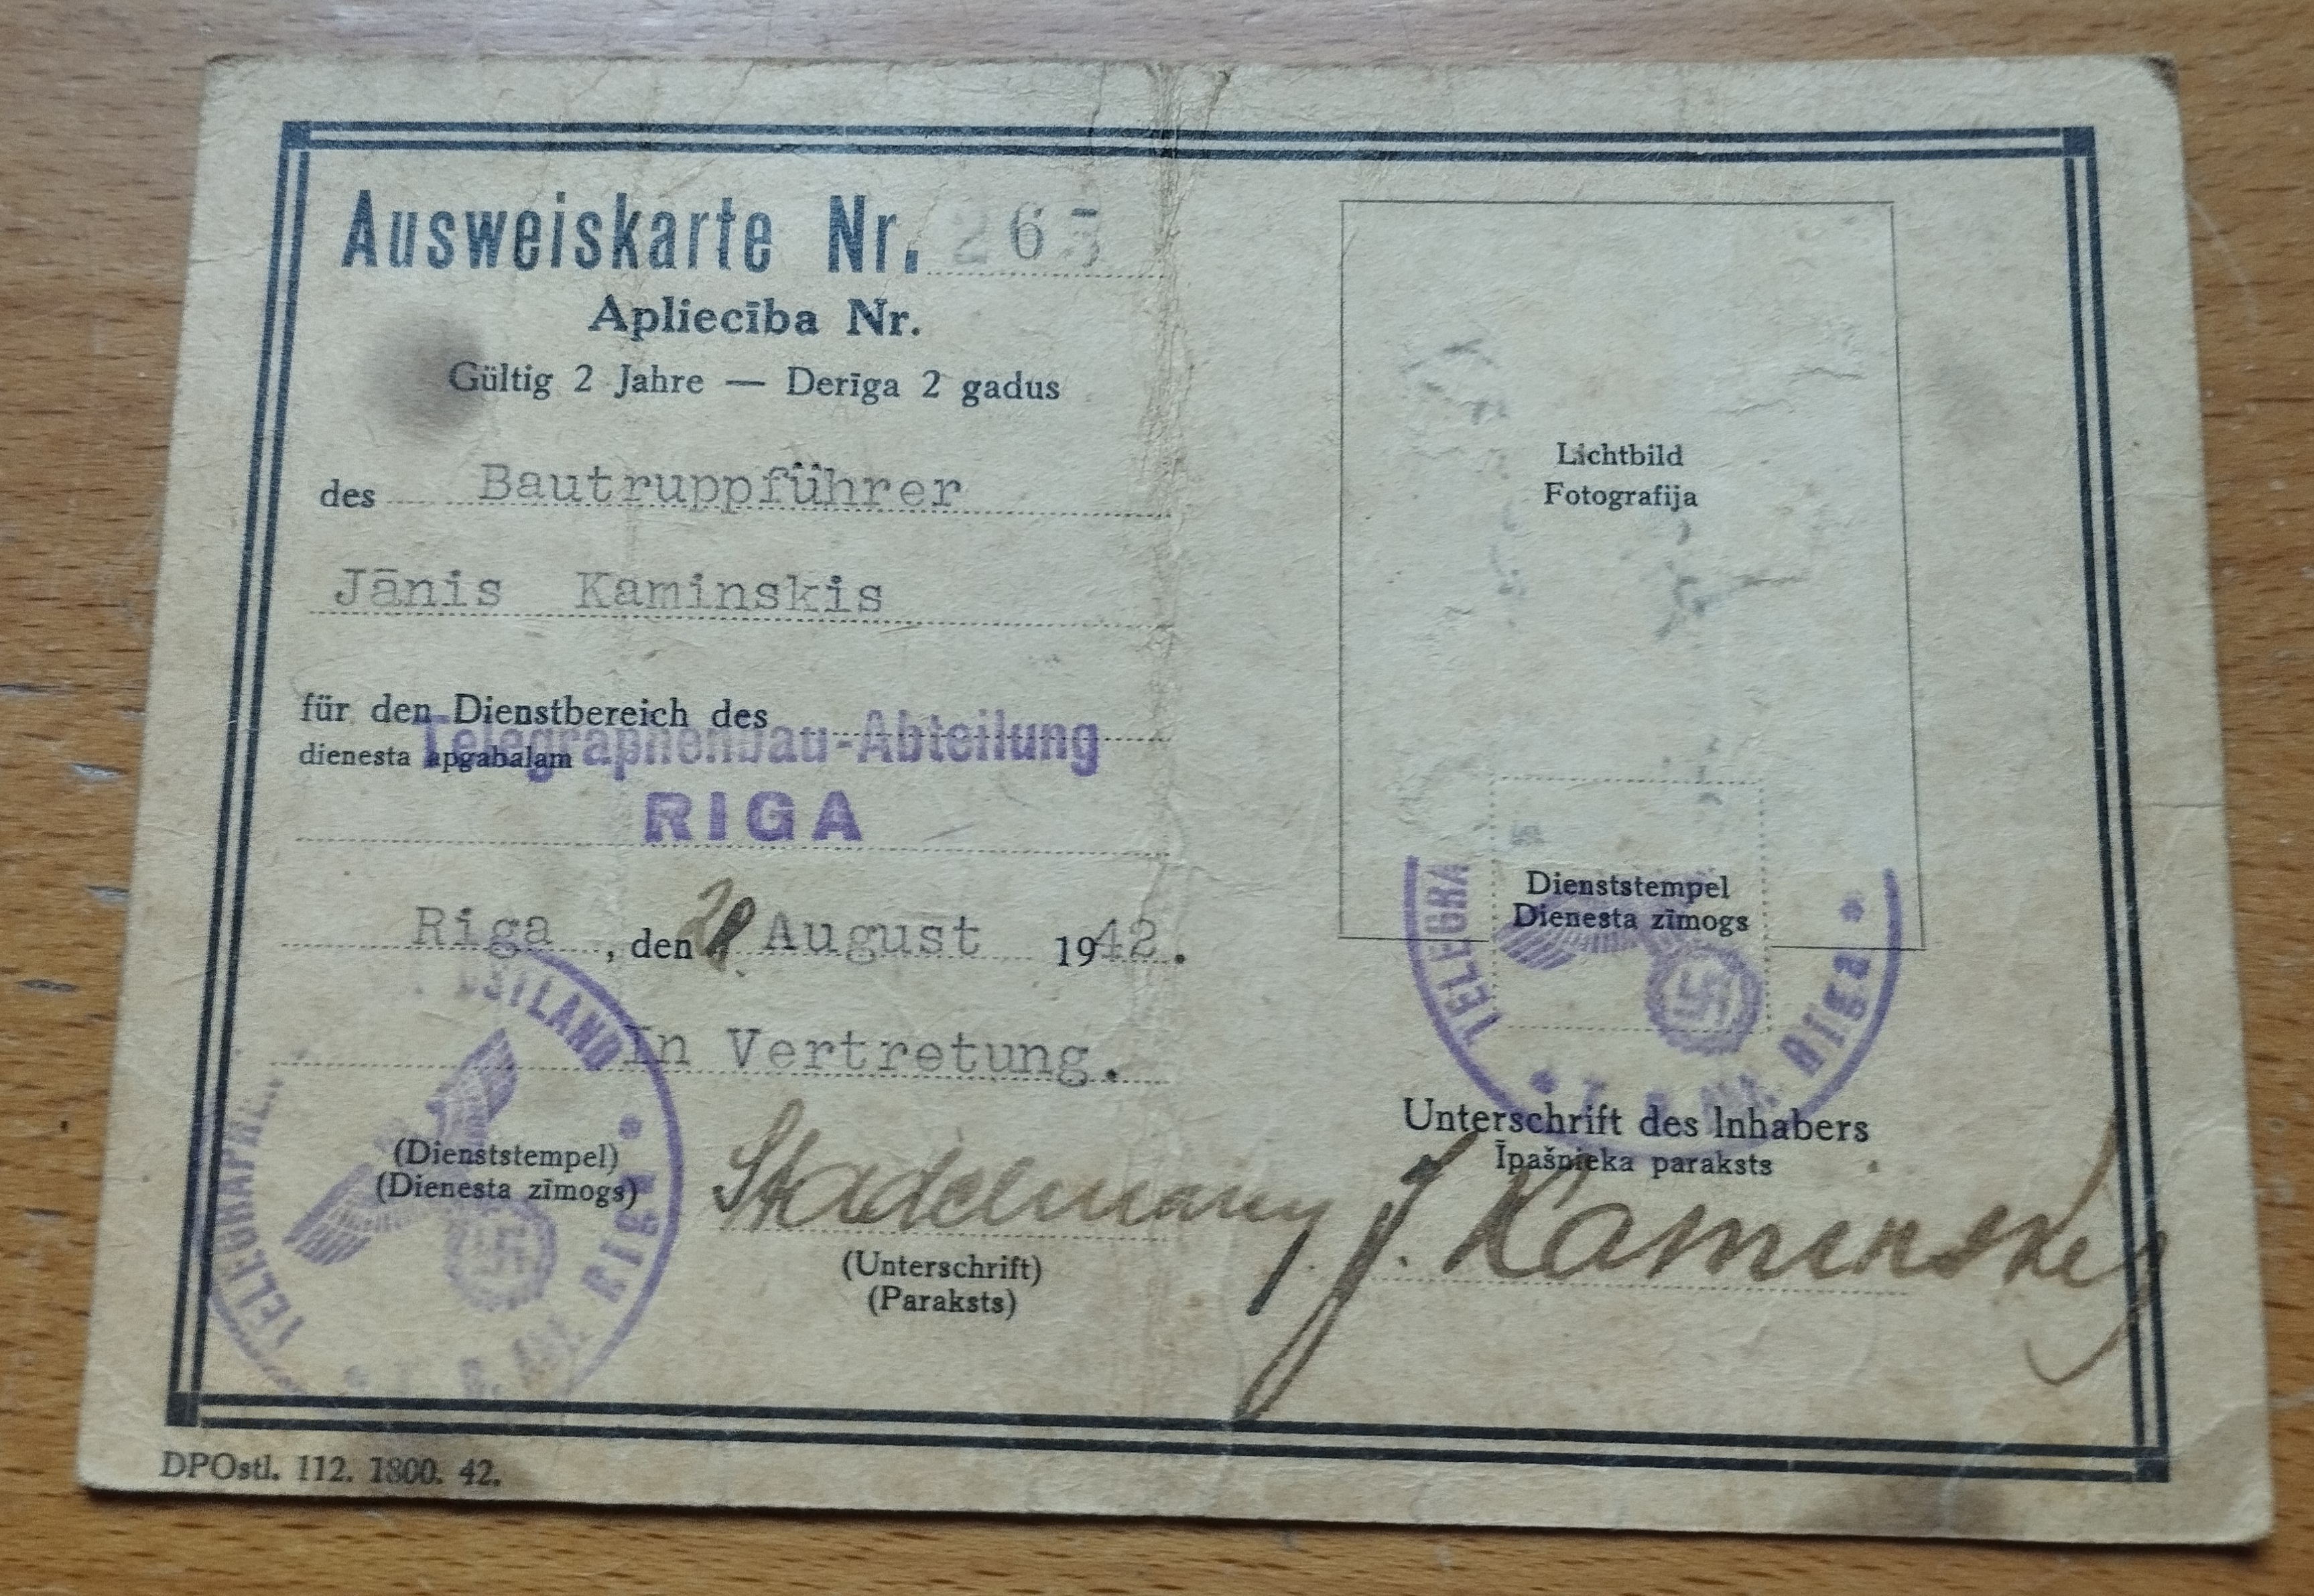 Ausweiskarte Nr. 265
Apliecība Nr.
Gültig 2 Jahre — Derīga 2 gadus
des Bautruppführer
Jānis Kaminskis
für den Dienstbereich des
dienesta apgabalam
Telegraphenbau-Abteilung
RIGA
Riga, den August 1942.
In Vertretung.
OSTLAND
TELEGRAPHE
RIGA
(Dienststempel)
(Dienesta zīmogs)
(Unterschrift)
(Paraksts)
DPOstl. 112. 1800. 42.
Lichtbild
Fotografija
Dienststempel
Dienesta zīmogs
TELEGRA
Riga
Unterschrift des Inhabers
Īpašnieka paraksts
J. Kaminskis